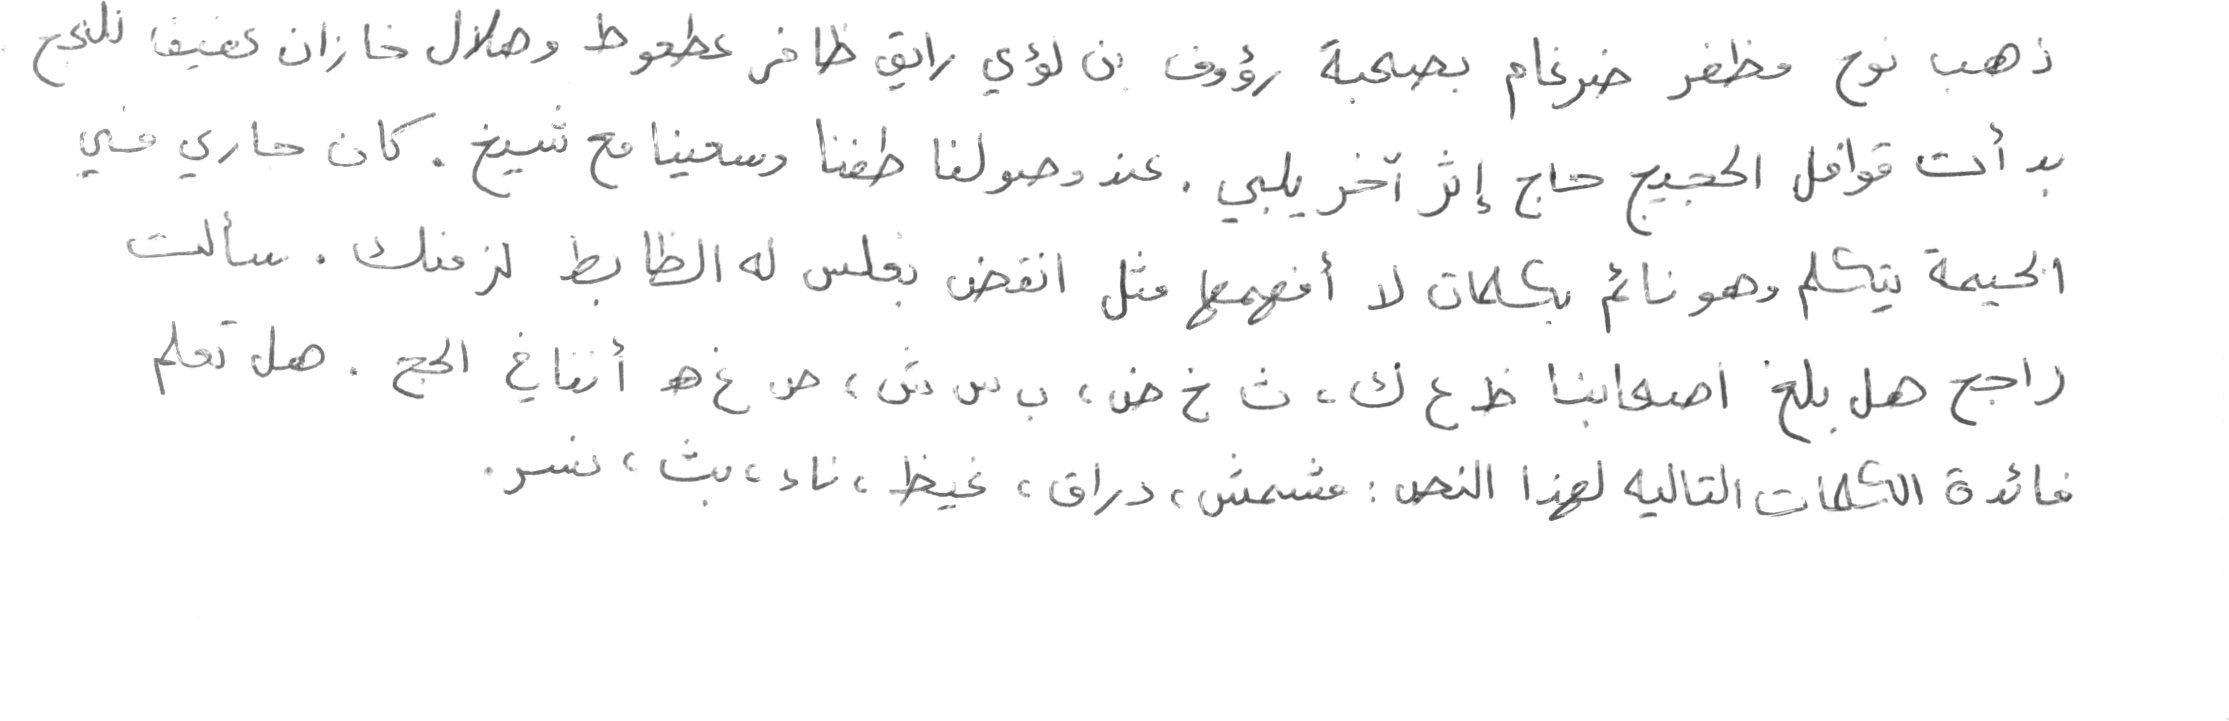 ذهب نوح مظفر ضرغام بصحبة رؤوف بن لؤي رايق ظافر عطعوط وهلال خازان عفيفا للحج
بدأت قوافل الحجيج حاج إثر آخر يلبي . عند وصولنا طفنا وسعينا مع شيخ . كان جاري في
الخيمة يتكلم وهو نائم بكلمات لا أفهمها مثل انقض بغلس له الظابط لزعنك . سألت
راجح هل بلغ اصحابنا ظ ع ك ، ث خ ض ، ب س ش ، ص غ ه أنناغ الحج . هل تعلم
فائدة الكلمات التاليه لهذا النص : مشمش ، دراق ، غيظ ، ناء ، بث ، نسر .